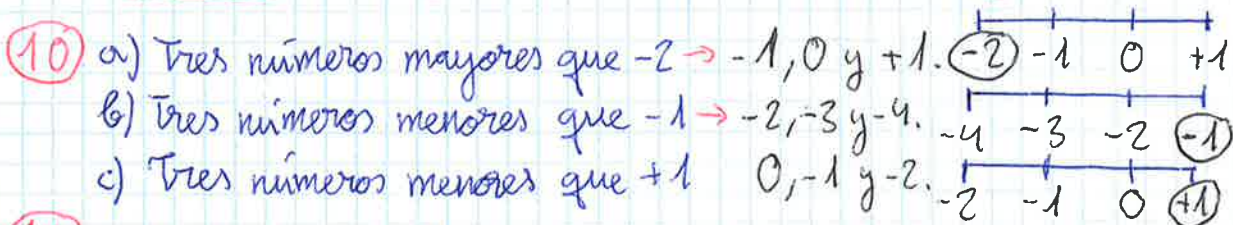 10 a) Tres números mayores que -2 → -1, 0 y +1. -2 -1 0 +1
b) Tres números menores que -1 → -2, -3 y -4. -4 -3 -2 -1
c) Tres números menores que +1 0, -1 y -2. -2 -1 0 +1